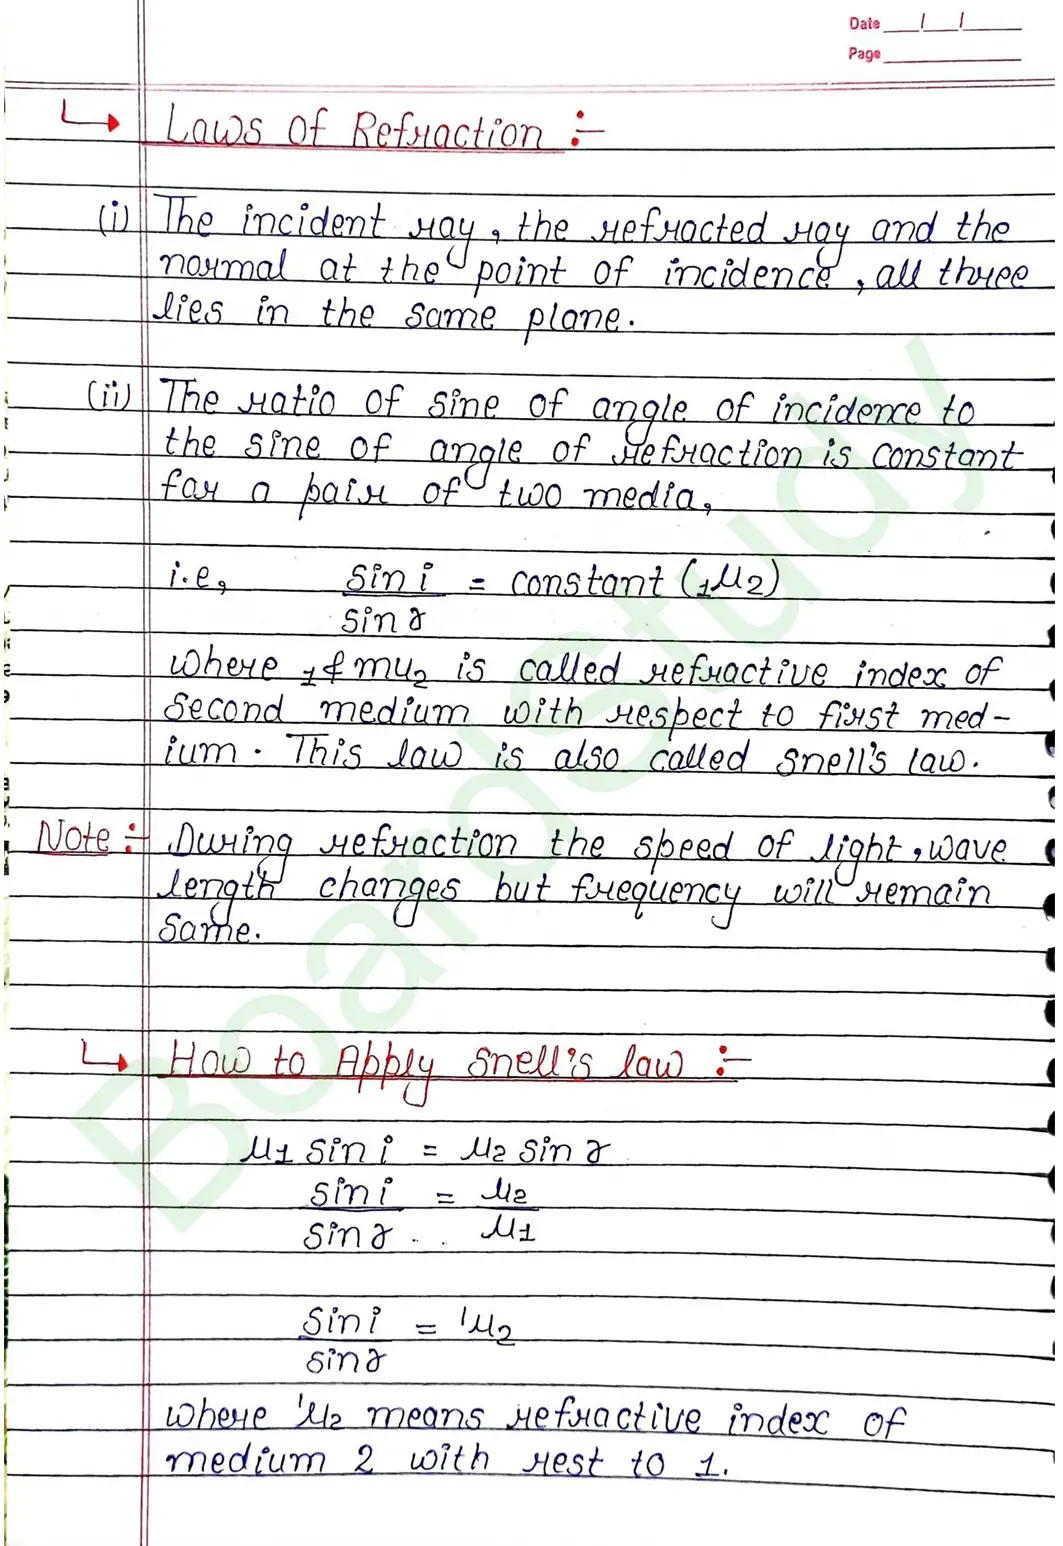 Date __/__/__
Page
Laws of Refraction :-
(i) The incident ray, the refracted ray and the
normal at the point of incidence, all three
lies in the same plane.
(ii) The ratio of sine of angle of incidence to
the sine of angle of refraction is constant
for a pair of two media,
i.e, sin i / sin r = constant (₁μ₂)
where ₁& mu₂ is called refractive index of
second medium with respect to first med-
ium. This law is also called Snell's law.
Note :- During refraction the speed of light, wave
length changes but frequency will remain
same.
How to Apply Snell's law :-
μ₁ sin i = μ₂ sin r
sin i / sin r = μ₂ / μ₁
sin i / sin r = ¹μ₂
where ¹μ₂ means refractive index of
medium 2 with rest to 1.
BoardStudy